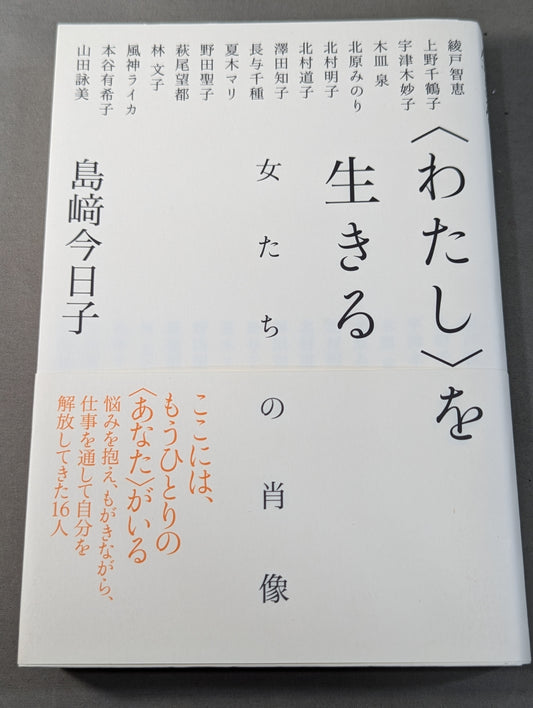 綾戸智恵
上野千鶴子
宇津木妙子
木皿 泉
北原みのり
北村明子
北村道子
澤田知子
長与千種
夏木マリ
野田聖子
萩尾望都
林 文子
風神ライカ
本谷有希子
山田詠美
〈わたし〉を
生きる
女たちの肖像
島﨑今日子
ここには、
もうひとりの
〈あなた〉がいる
悩みを抱え、もがきながら、
仕事を通して自分を
解放してきた16人